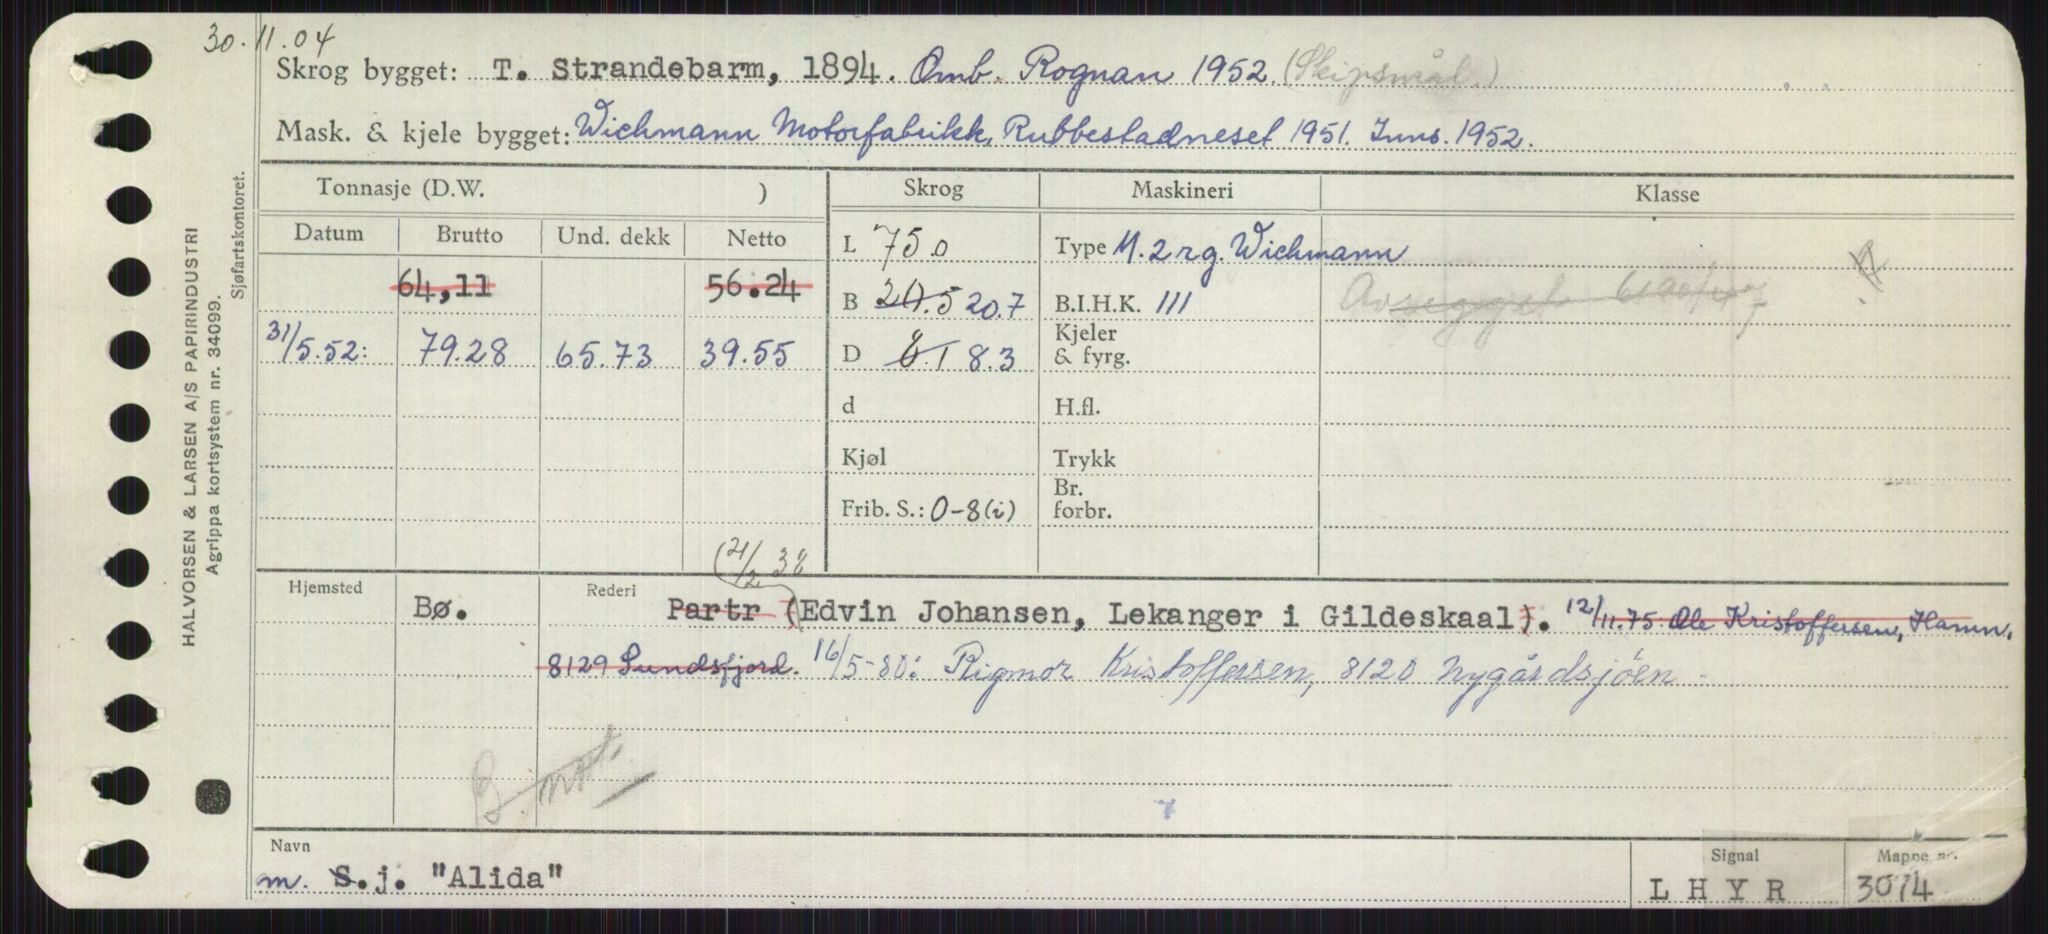 30.11.04
Skrog bygget: T. Strandebarm, 1894. Omb. Rognan 1952. (Skipsmål.)
Mask. & kjele bygget: Wichmann Motorfabrikk, Rubbestadneset 1951. Inns. 1952.
Tonnasje (D.W. ) Skrog Maskineri Klasse
Datum Brutto Und. dekk Netto L 75.0 Type M. 2 rg. Wichmann
64,11 56.24 B 20.5 20.7 B.I.H.K. 111
31/5.52: 79.28 65.73 39.55 D 8.1 8.3 Kjeler & fyrg.
d H.fl.
Kjøl Trykk
Frib. S.: 0-8(i) Br. forbr.
(21/2 38
Hjemsted Bø. Rederi Partr (Edvin Johansen, Lekanger i Gildeskaal). 12/11.75 Ole Kristoffersen, Hamn,
8129 Sundsfjord. 16/5-80: Rigmor Kristoffersen, 8120 Nygårdsjøen
B. mot.
Navn Signal Mappe nr.
m. S.j. "Alida" LHYR 3074
HALVORSEN & LARSEN A/S PAPIRINDUSTRI
Agrippa kortsystem nr. 34099.
Sjøfartskontoret.